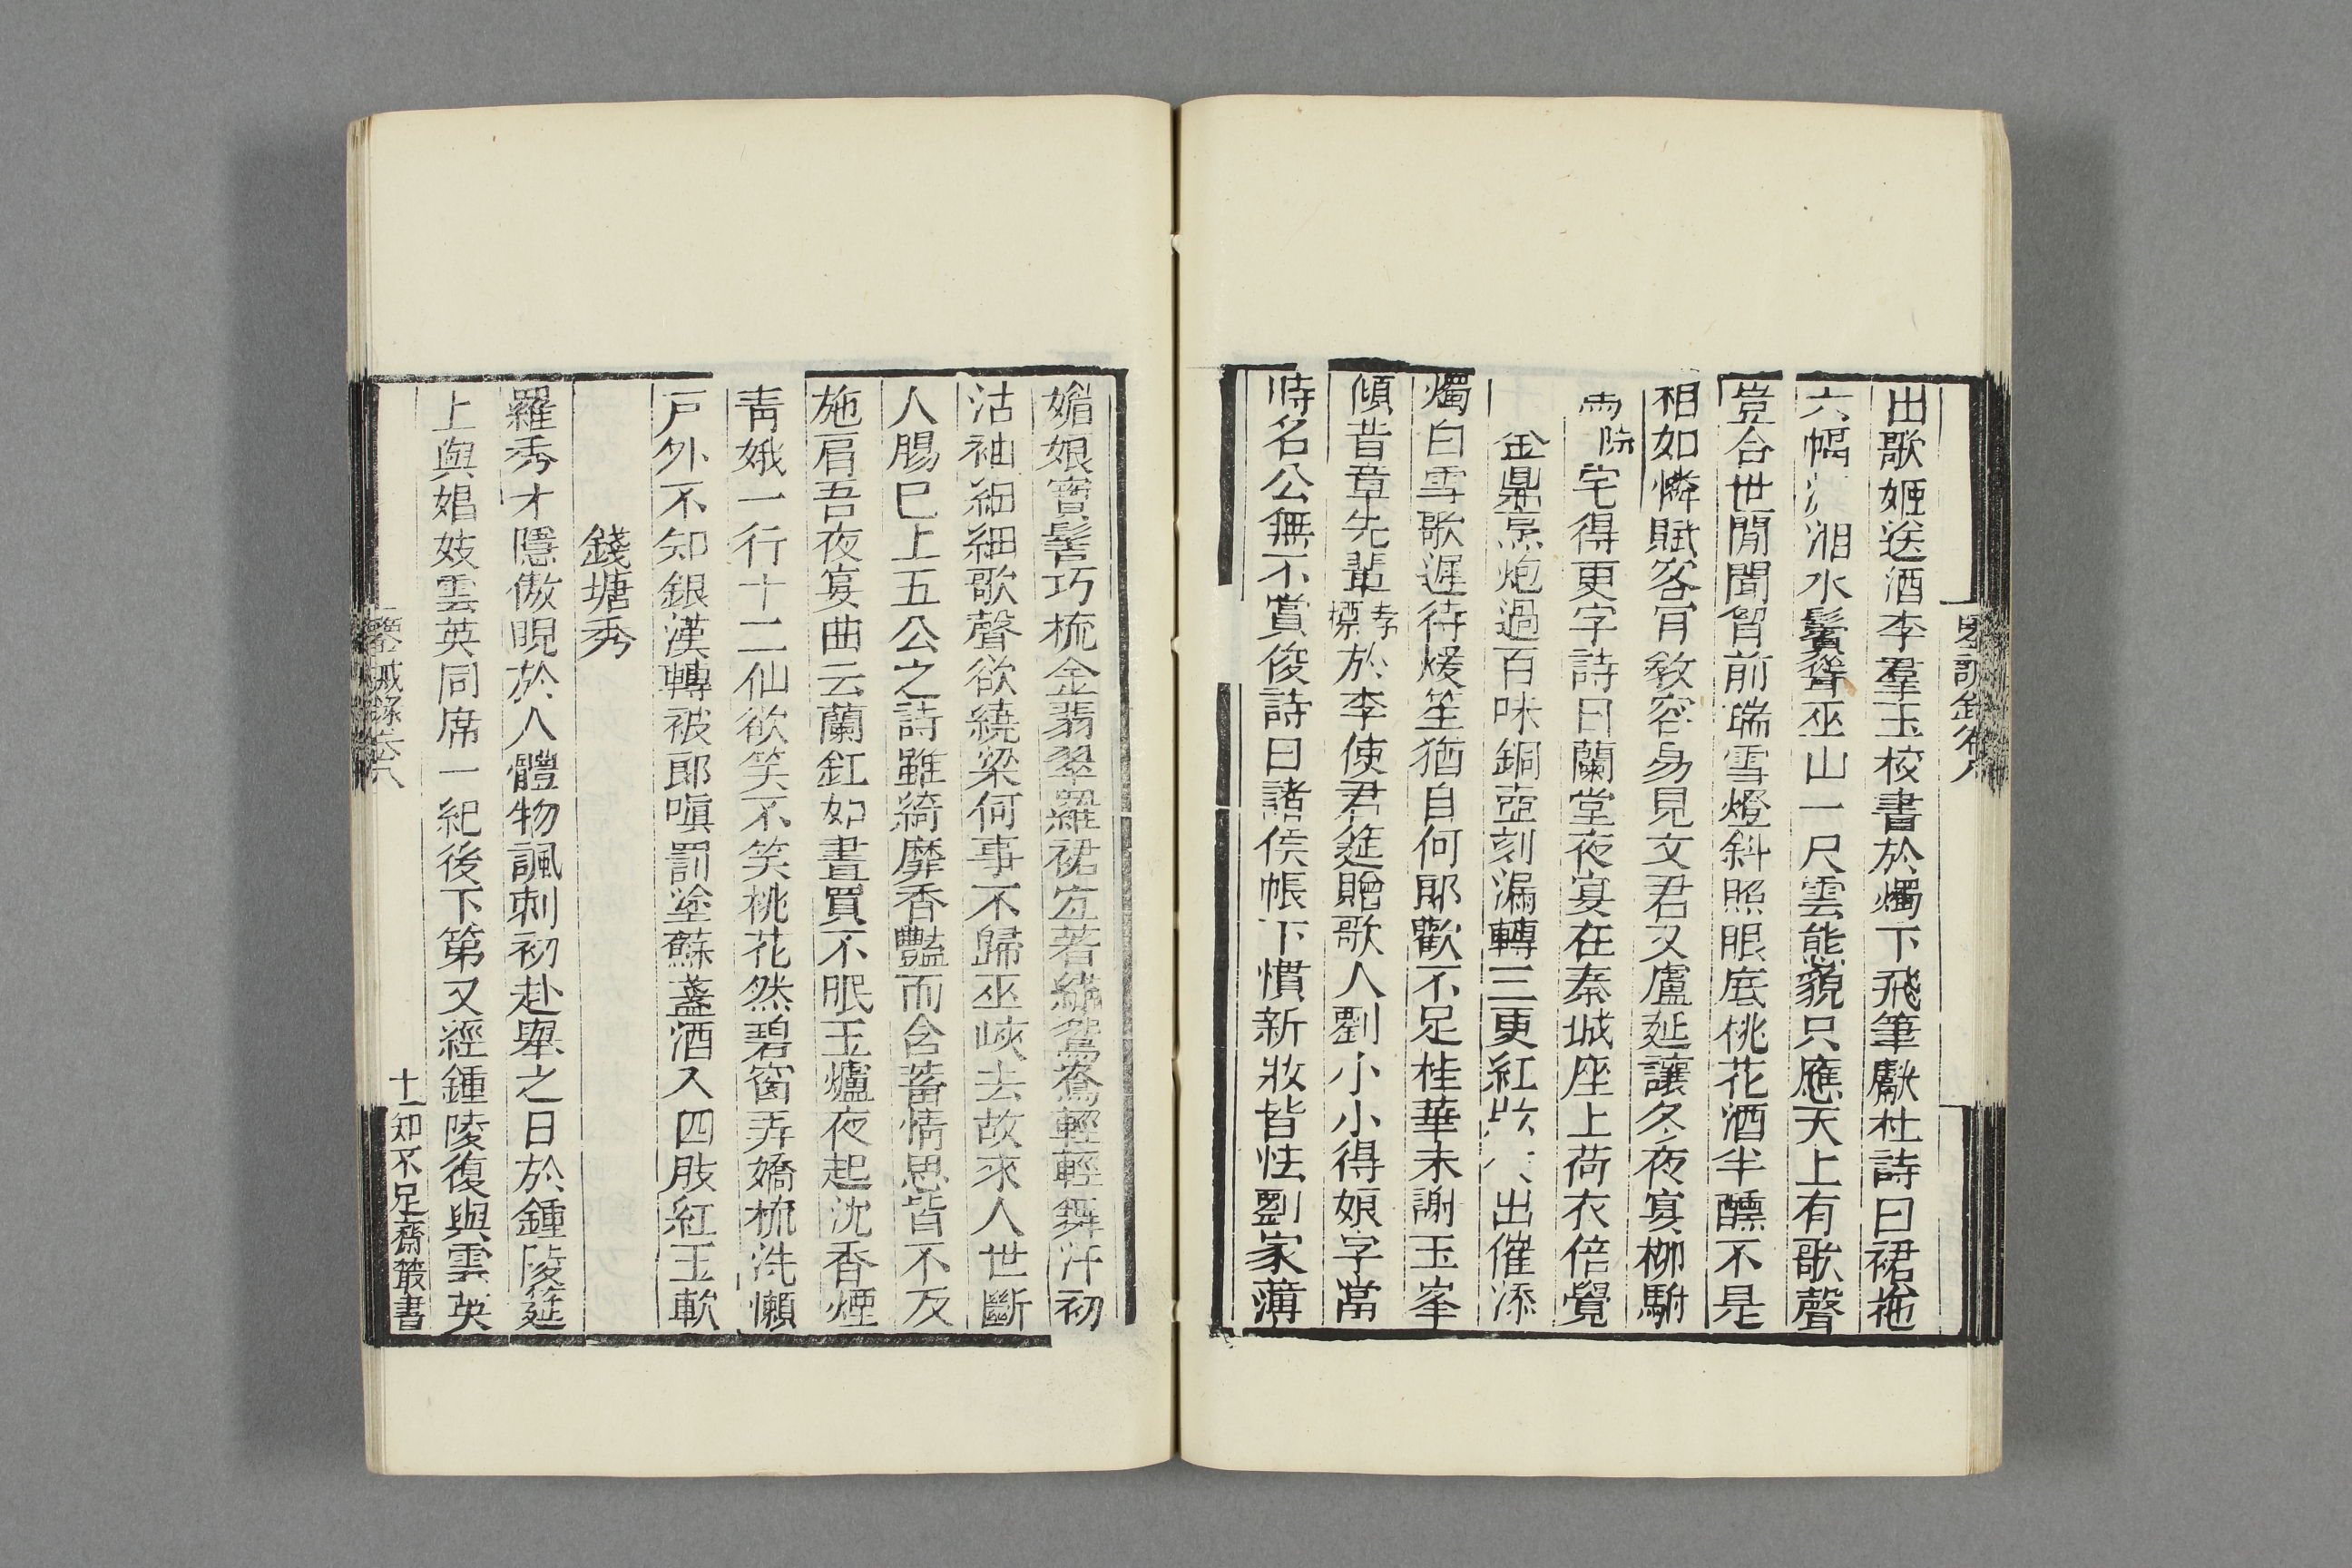 鑒誡錄卷八
出歌姬送酒李羣玉校書於燭下飛筆獻杜詩曰裙拖
六幅湘水鬢聳巫山一尺雲態貌只應天上有歌聲
豈合世閒聞胷前瑞雪燈斜照眼底桃花酒半醺不是
相如憐賦客肎敎容易見文君又盧延讓冬夜宴柳駙
宅得更字詩曰蘭堂夜宴在秦城座上荷衣倍覺
金鼎烹炮過百味銅壺刻漏轉三更紅出催添
燭白雪歌遲待煖笙猶自何郞歡不足桂華未謝玉峯
傾昔章先輩孝標於李使君筵贈歌人劉小小得娘字當
時名公無不賞俊詩曰諸侯帳下慣新妝皆怯劉家薄
媚娘寶髻巧梳金翡翠羅裙宐著繡鴛鴦輕輕舞汗初
沾袖細細歌聲欲繞梁何事不歸巫峽去故來人世斷
人腸巳上五公之詩雖綺靡香豔而含蓄情思皆不及
施肩吾夜宴曲云蘭釭如晝買不眠玉爐夜起沈香煙
靑娥一行十二仙欲笑不笑桃花然碧窗弄嬌梳洗懶
戸外不知銀漢轉被郞嗔罰塗蘇盞酒入四肢紅玉軟
錢塘秀
羅秀才隱傲睨於人體物諷刺初赴舉之日於鍾陵筵
上與娼妓雲英同席一紀後下第又經鍾陵復與雲英
鑒誡錄卷八
十一
知不足齋叢書